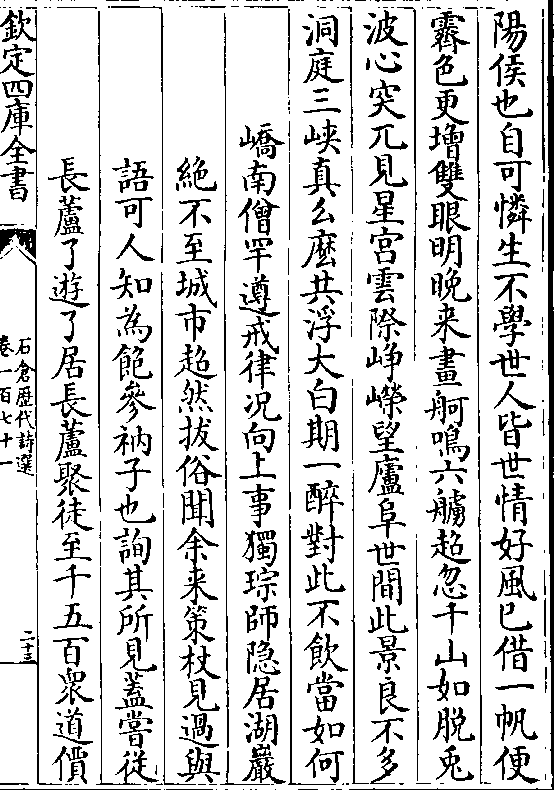 陽侯也自可憐生不學世人皆世情好風已借一帆便
霽色更增雙眼明晚来畫舸鳴六艣超忽千山如脱兎
波心突兀見星宮雲際崢嶸望廬阜世間此景良不多
洞庭三峽真么麽共浮大白期一醉對此不飲當如何
嶠南僧罕遵戒律况向上事獨琮師隐居湖巖
絶不至城市超然拔俗聞余来策杖見過與
語可人知為飽參衲子也詢其所見蓋嘗從
長蘆了遊了居長蘆聚徒至千五百衆道價
欽定四庫全書
石倉歴代詩選
卷一百七十一
二十三